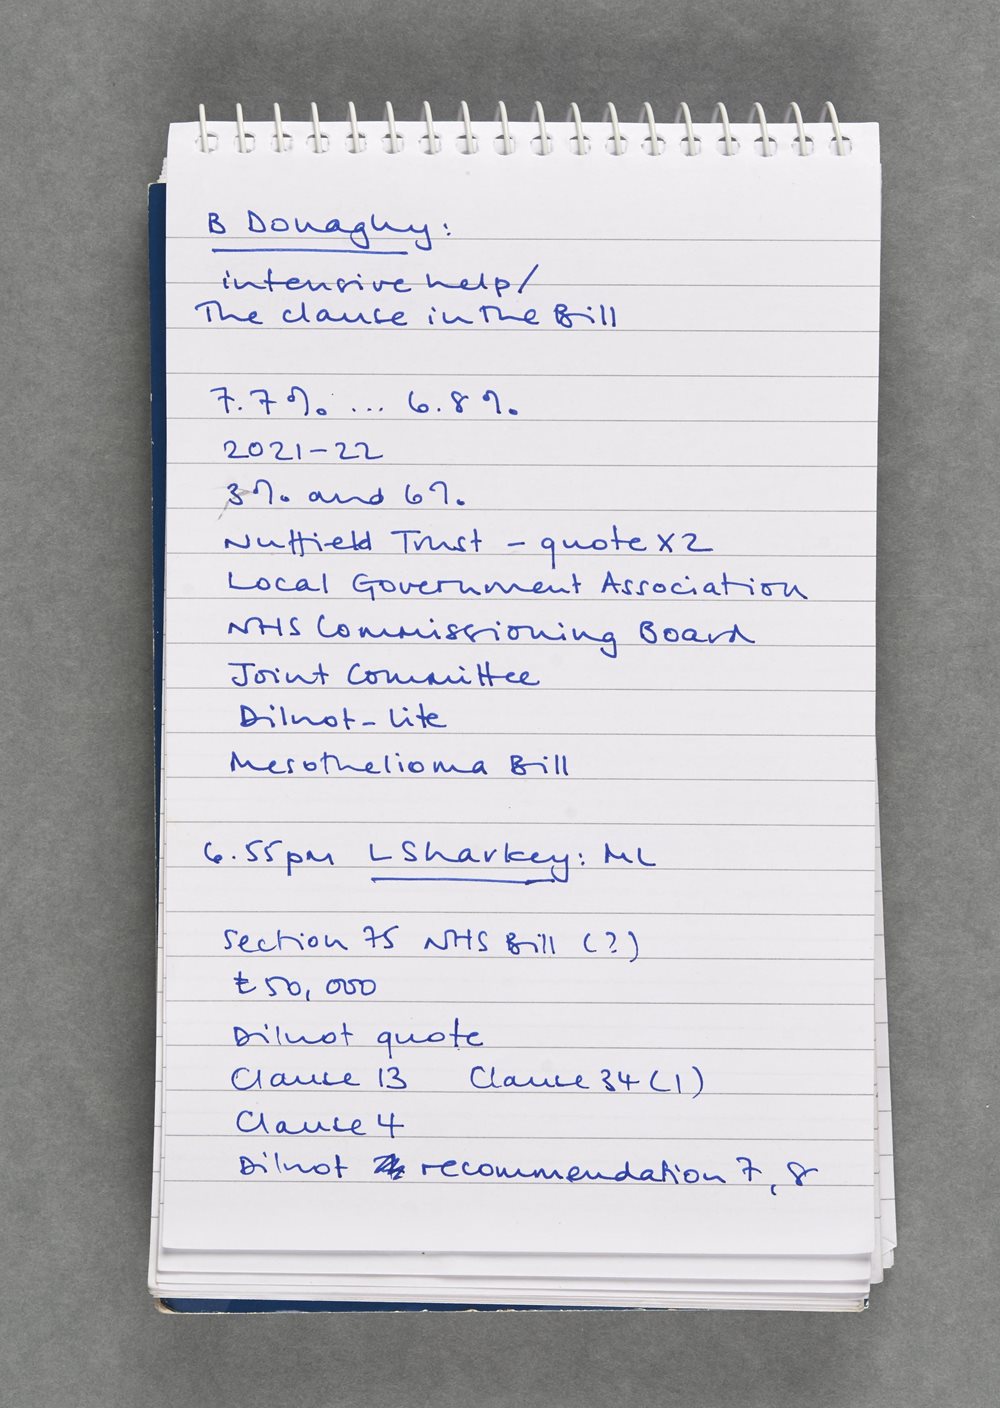 B Donaghy:
intensive help/
The clause in the Bill
7.7% ... 6.8%
2021-22
3% and 6%
Nuffield Trust - quote x 2
Local Government Association
NHS Commissioning Board
Joint Committee
Dilnot-lite
Mesothelioma Bill
6.55pm L Sharkey: ML
Section 75 NHS Bill (?)
£50,000
Dilnot quote
Clause 13 Clause 34 (1)
Clause 4
Dilnot recommendation 7, 8